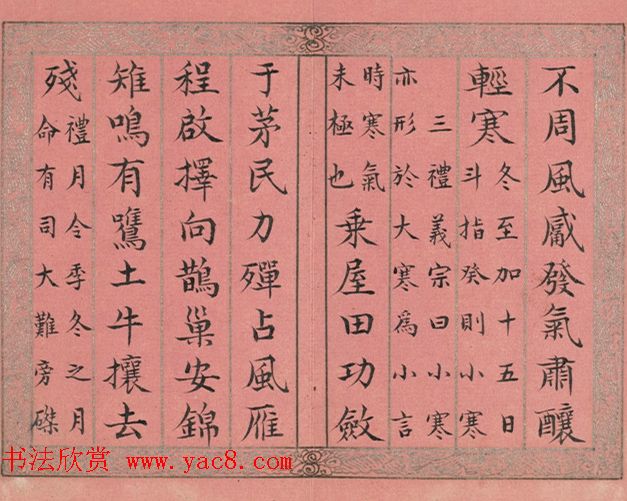 不周風觱發氣肅釀
輕寒
冬至加十五日
斗指癸則小寒
三禮義宗曰小寒
亦形於大寒爲小言
時寒氣
未極也
乗屋田功斂
于茅民力殫占風雁
程啟擇向鵲巢安錦
雉鳴有鷕土牛攘去
殘
禮月令季冬之月
命有司大難旁磔
书法欣赏 www.yac8.com